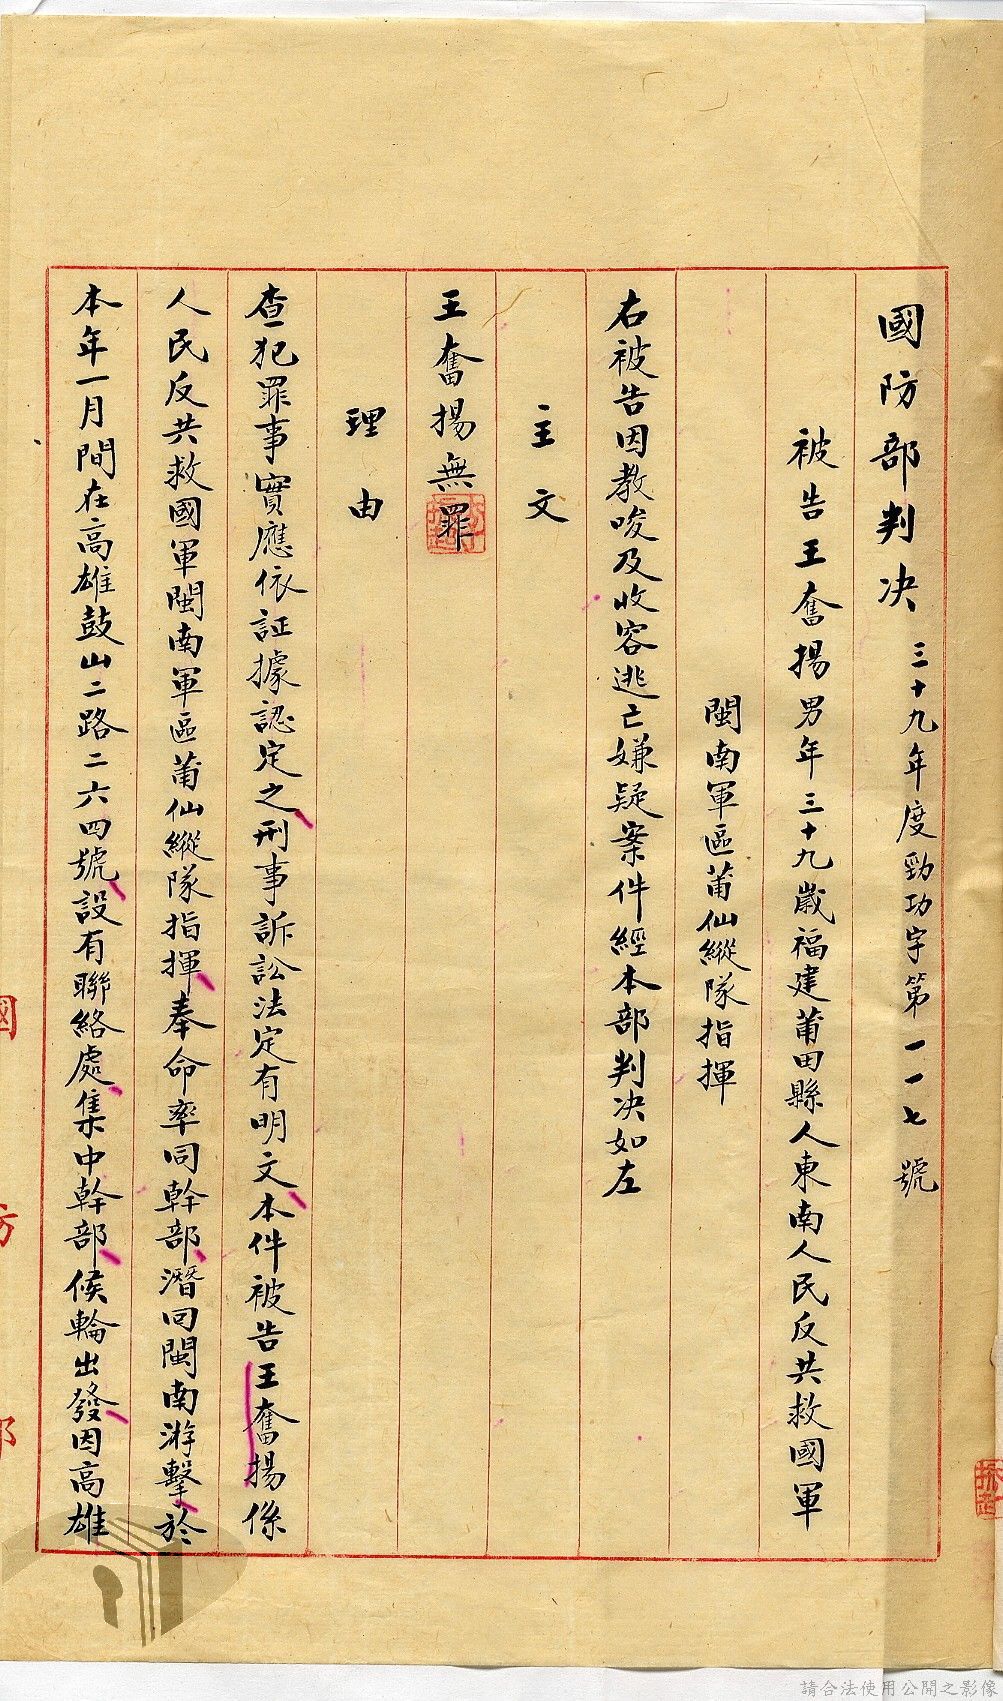 國防部判決 三十九年度勁功字第一一七號
被告王奮揚男年三十九歲福建莆田縣人東南人民反共救國軍
閩南軍區莆仙縱隊指揮
右被告因教唆及收容逃亡嫌疑案件經本部判決如左
主文
王奮揚無罪
理由
查犯罪事實應依証據認定之刑事訴訟法定有明文本件被告王奮揚係
人民反共救國軍閩南軍區莆仙縱隊指揮奉命率同幹部潛回閩南游擊於
本年一月間在高雄鼓山二路二六四號設有聯絡處集中幹部候輪出發因高雄
國防部
請合法使用公開之影像